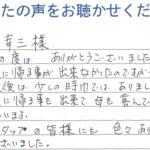 たの声をお聴かせくだ
幸三様
の度は ありがとうございました
に帰る事が出来なかったのですが
後は少しの時間では、ありまし
に帰る事も出来て 母も喜んで
います
タッフの皆様にも 色々あり
ざいました。